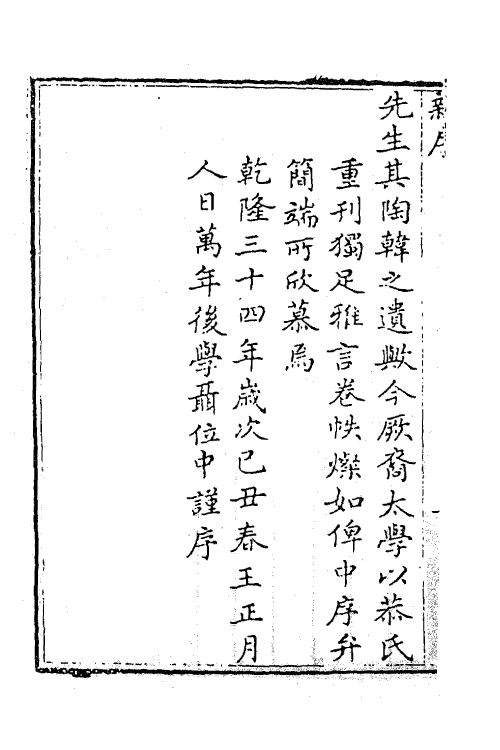 新序
先生其陶韓之遺歟今厥裔太學以恭氏
重刊獨足雅言卷帙燦如俾中序弁
簡端所欣慕焉
乾隆三十四年歲次己丑春王正月
人日萬年後學聶位中謹序